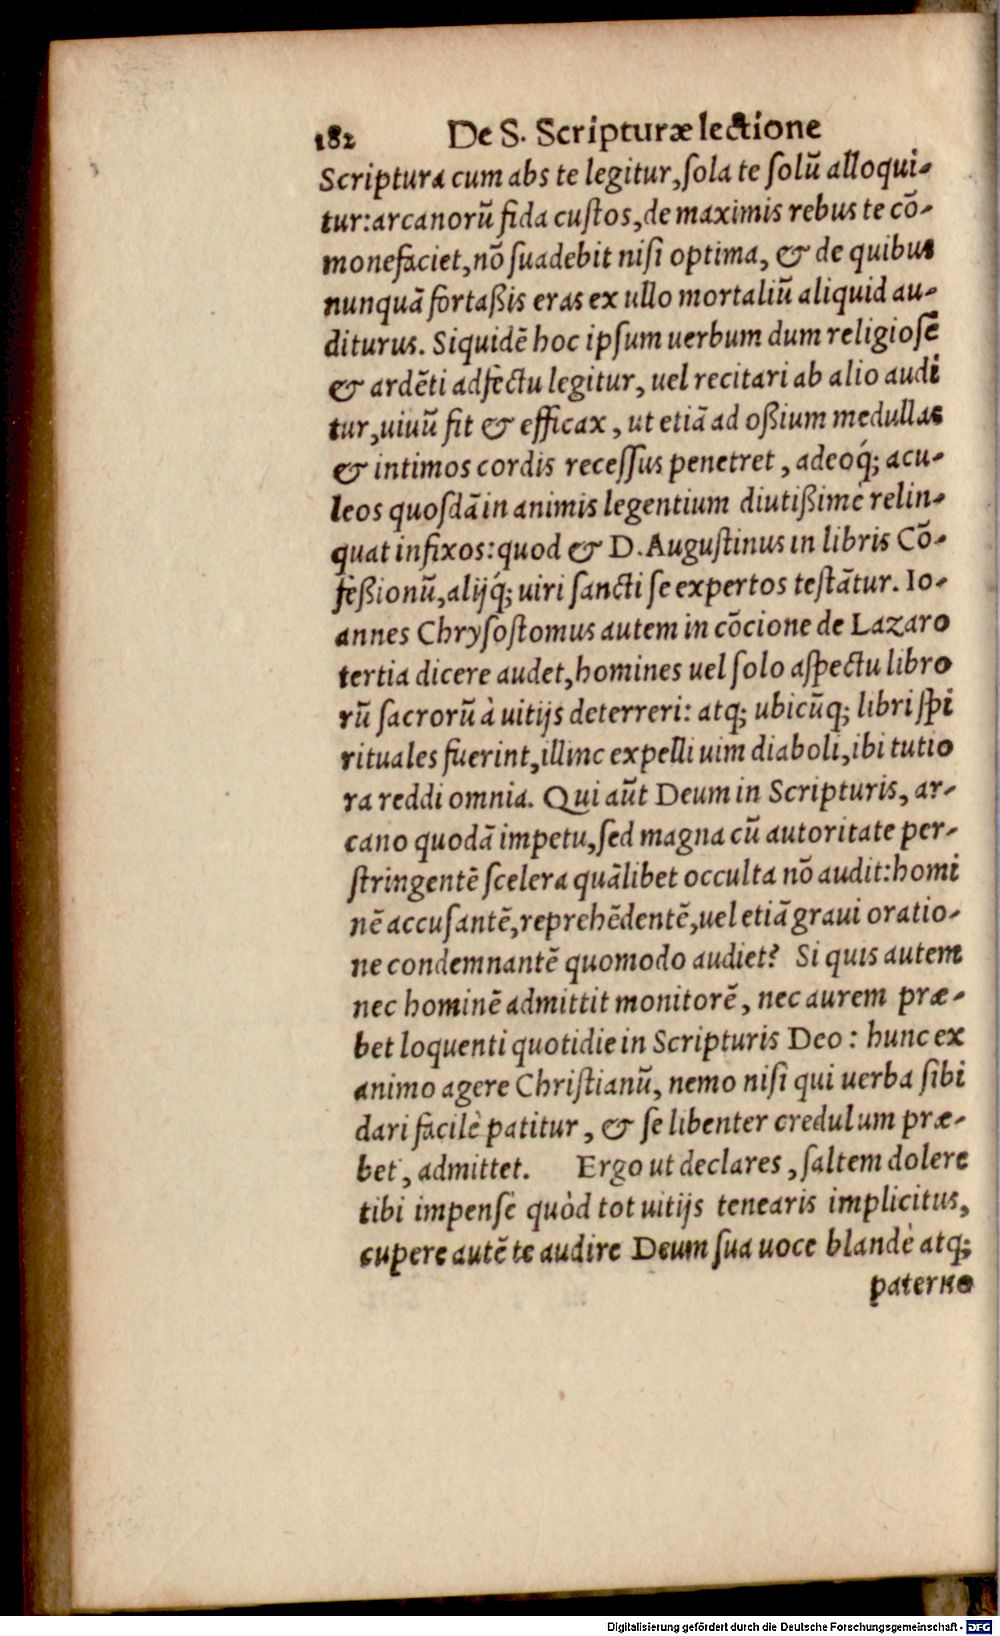 182 De S. Scripturæ lectione
Scriptura cum abs te legitur, ſola te ſolũ alloqui-
tur: arcanorũ fida cuſtos, de maximis rebus te cõ-
monefaciet, nõ ſuadebit niſi optima, & de quibus
nunquã fortaßis eras ex ullo mortaliũ aliquid au-
diturus. Siquidẽ hoc ipſum uerbum dum religioſẽ
& ardẽti adfectu legitur, uel recitari ab alio audi
tur, uiuũ fit & efficax, ut etiã ad oßium medullas
& intimos cordis receſſus penetret, adeoq́; acu-
leos quoſdã in animis legentium diutißimè relin-
quat infixos: quod & D. Auguſtinus in libris Cõ-
feßionũ, alijq́; uiri ſancti ſe expertos teſtãtur. Io-
annes Chryſoſtomus autem in cõcione de Lazaro
tertia dicere audet, homines uel ſolo aſpectu libro
rũ ſacrorũ à uitijs deterreri: atq; ubicũq; libri ſpi
rituales fuerint, illinc expelli uim diaboli, ibi tutio
ra reddi omnia. Qui aũt Deum in Scripturis, ar-
cano quodã impetu, ſed magna cũ autoritate per-
ſtringentẽ ſcelera quãlibet occulta nõ audit: homi
nẽ accuſantẽ, reprehẽdentẽ, uel etiã graui oratio-
ne condemnantẽ quomodo audiet? Si quis autem
nec hominẽ admittit monitorẽ, nec aurem præ-
bet loquenti quotidie in Scripturis Deo: hunc ex
animo agere Chriſtianũ, nemo niſi qui uerba ſibi
dari facilè patitur, & ſe libenter credulum præ-
bet, admittet. Ergo ut declares, ſaltem dolere
tibi impenſè quòd tot uitijs tenearis implicitus,
cupere autẽ te audire Deum ſua uoce blandè atq;
paterno
Digitalisierung gefördert durch die Deutsche Forschungsgemeinschaft - DFG